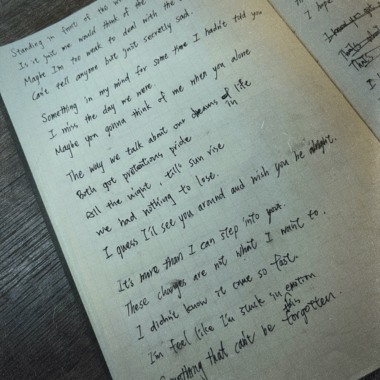 Standing in front of the
Is it just me would think of the
Maybe I'm too weak to deal with the
Can't tell anyone but just secretly sad.
Something in my mind for some time I hadn't told you
I miss the day we were.
Maybe you gonna think of me when you alone
The way we talk about our dreams of life
in
Both got pretentions, pride
All the night, till's sun rise
we had nothing to lose.
I guess I'll see you around and wish you be alright.
It's more than I can step into your.
These changes are not what I want to.
I didn't know it came so fast.
I'm feel like I'm stuck in emotion
this
Something that can't be forgotten.
I hope
That's
I